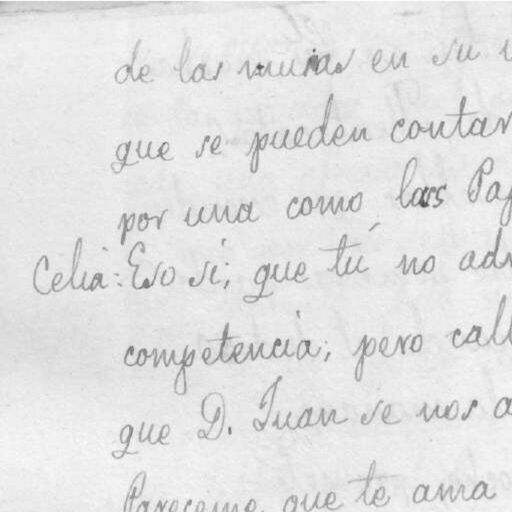 de las musas en su
que se pueden contar
por una como las
Celia: Eso si; que tú no
competencia, pero
que D. Juan se nos
Pareceme que te ama